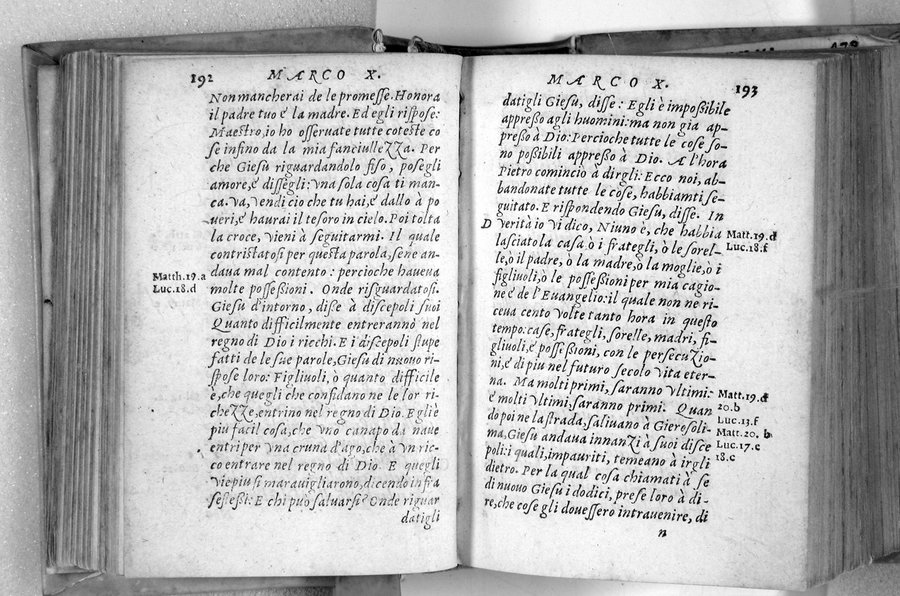 192
MARCO X.
Non mancherai de le promesse. Honora
il padre tuo e' la madre. Ed egli rispose:
Maestro, io ho osseruate tutte coteste co
se infino da la mia fanciullezza. Per
che Giesu riguardandolo fiso, posegli
amore, e' dissegli: vna sola cosa ti man-
ca. Va, vendi cio che tu hai, e' dallo à po
ueri, e' haurai il tesoro in cielo. Poi tolta
la croce, vieni à seguitarmi. Il quale
contristatosi per questa parola, sene an-
daua mal contento : percioche haueua
Matth.19.a
molte possessioni. Onde risguardatosi
Luc.18.d
Giesu d'intorno, disse à discepoli suoi
Quanto difficilmente entreranno nel
regno di Dio i ricchi. E i discepoli stupe
fatti de le sue parole, Giesu di nuouo ri-
spose loro: Figliuoli, ò quanto difficile
è, che quegli che confidano ne le lor ri-
chezze, entrino nel regno di Dio. Egli è
piu facil cosa, che vno canapo da naue
entri per vna cruna d'ago, che à vn ric-
co entrare nel regno di Dio. E quegli
vie piu si marauigliarono, dicendo infra
se stessi: E chi può saluarsi? Onde riguar
datigli
MARCO X.
193
datigli Giesu, disse : Egli è impossibile
appresso agli huomini: ma non gia ap-
presso à Dio: Percioche tutte le cose so-
no possibili appresso à Dio. A l'hora
Pietro comincio à dirgli: Ecco noi, ab-
bandonate tutte le cose, habbiamti se-
guitato. E rispondendo Giesu, disse. In
D verità io vi dico, Niuno è, che habbia
Matt.19.d
lasciato la casa ò i frategli, ò le sorel-
Luc.18.f
le, ò il padre, ò la madre, ò la moglie, ò i
figliuoli, ò le possessioni per mia cagio-
ne e' de l'Euangelio: il quale non ne ri-
ceua cento volte tanto hora in questo
tempo: case, frategli, sorelle, madri, fi-
gliuoli, e' possessioni, con le persecuzio-
ni, e' di piu nel futuro secolo vita eter-
na. Ma molti primi, saranno vltimi:
Matt.19.d
e' molti vltimi, saranno primi. Quan
20.b
do poi ne la strada, saliuano à Gierosoli-
Luc.13.f
ma, Giesu andaua innanzi à suoi disce
Matt.20. b
Luc.17.c
poli: i quali, impauriti, temeano à irgli
18.c
dietro. Per la qual cosa chiamati à se
di nuouo Giesu i dodici, prese loro à di-
re, che cose gli douessero intrauenire, di
n